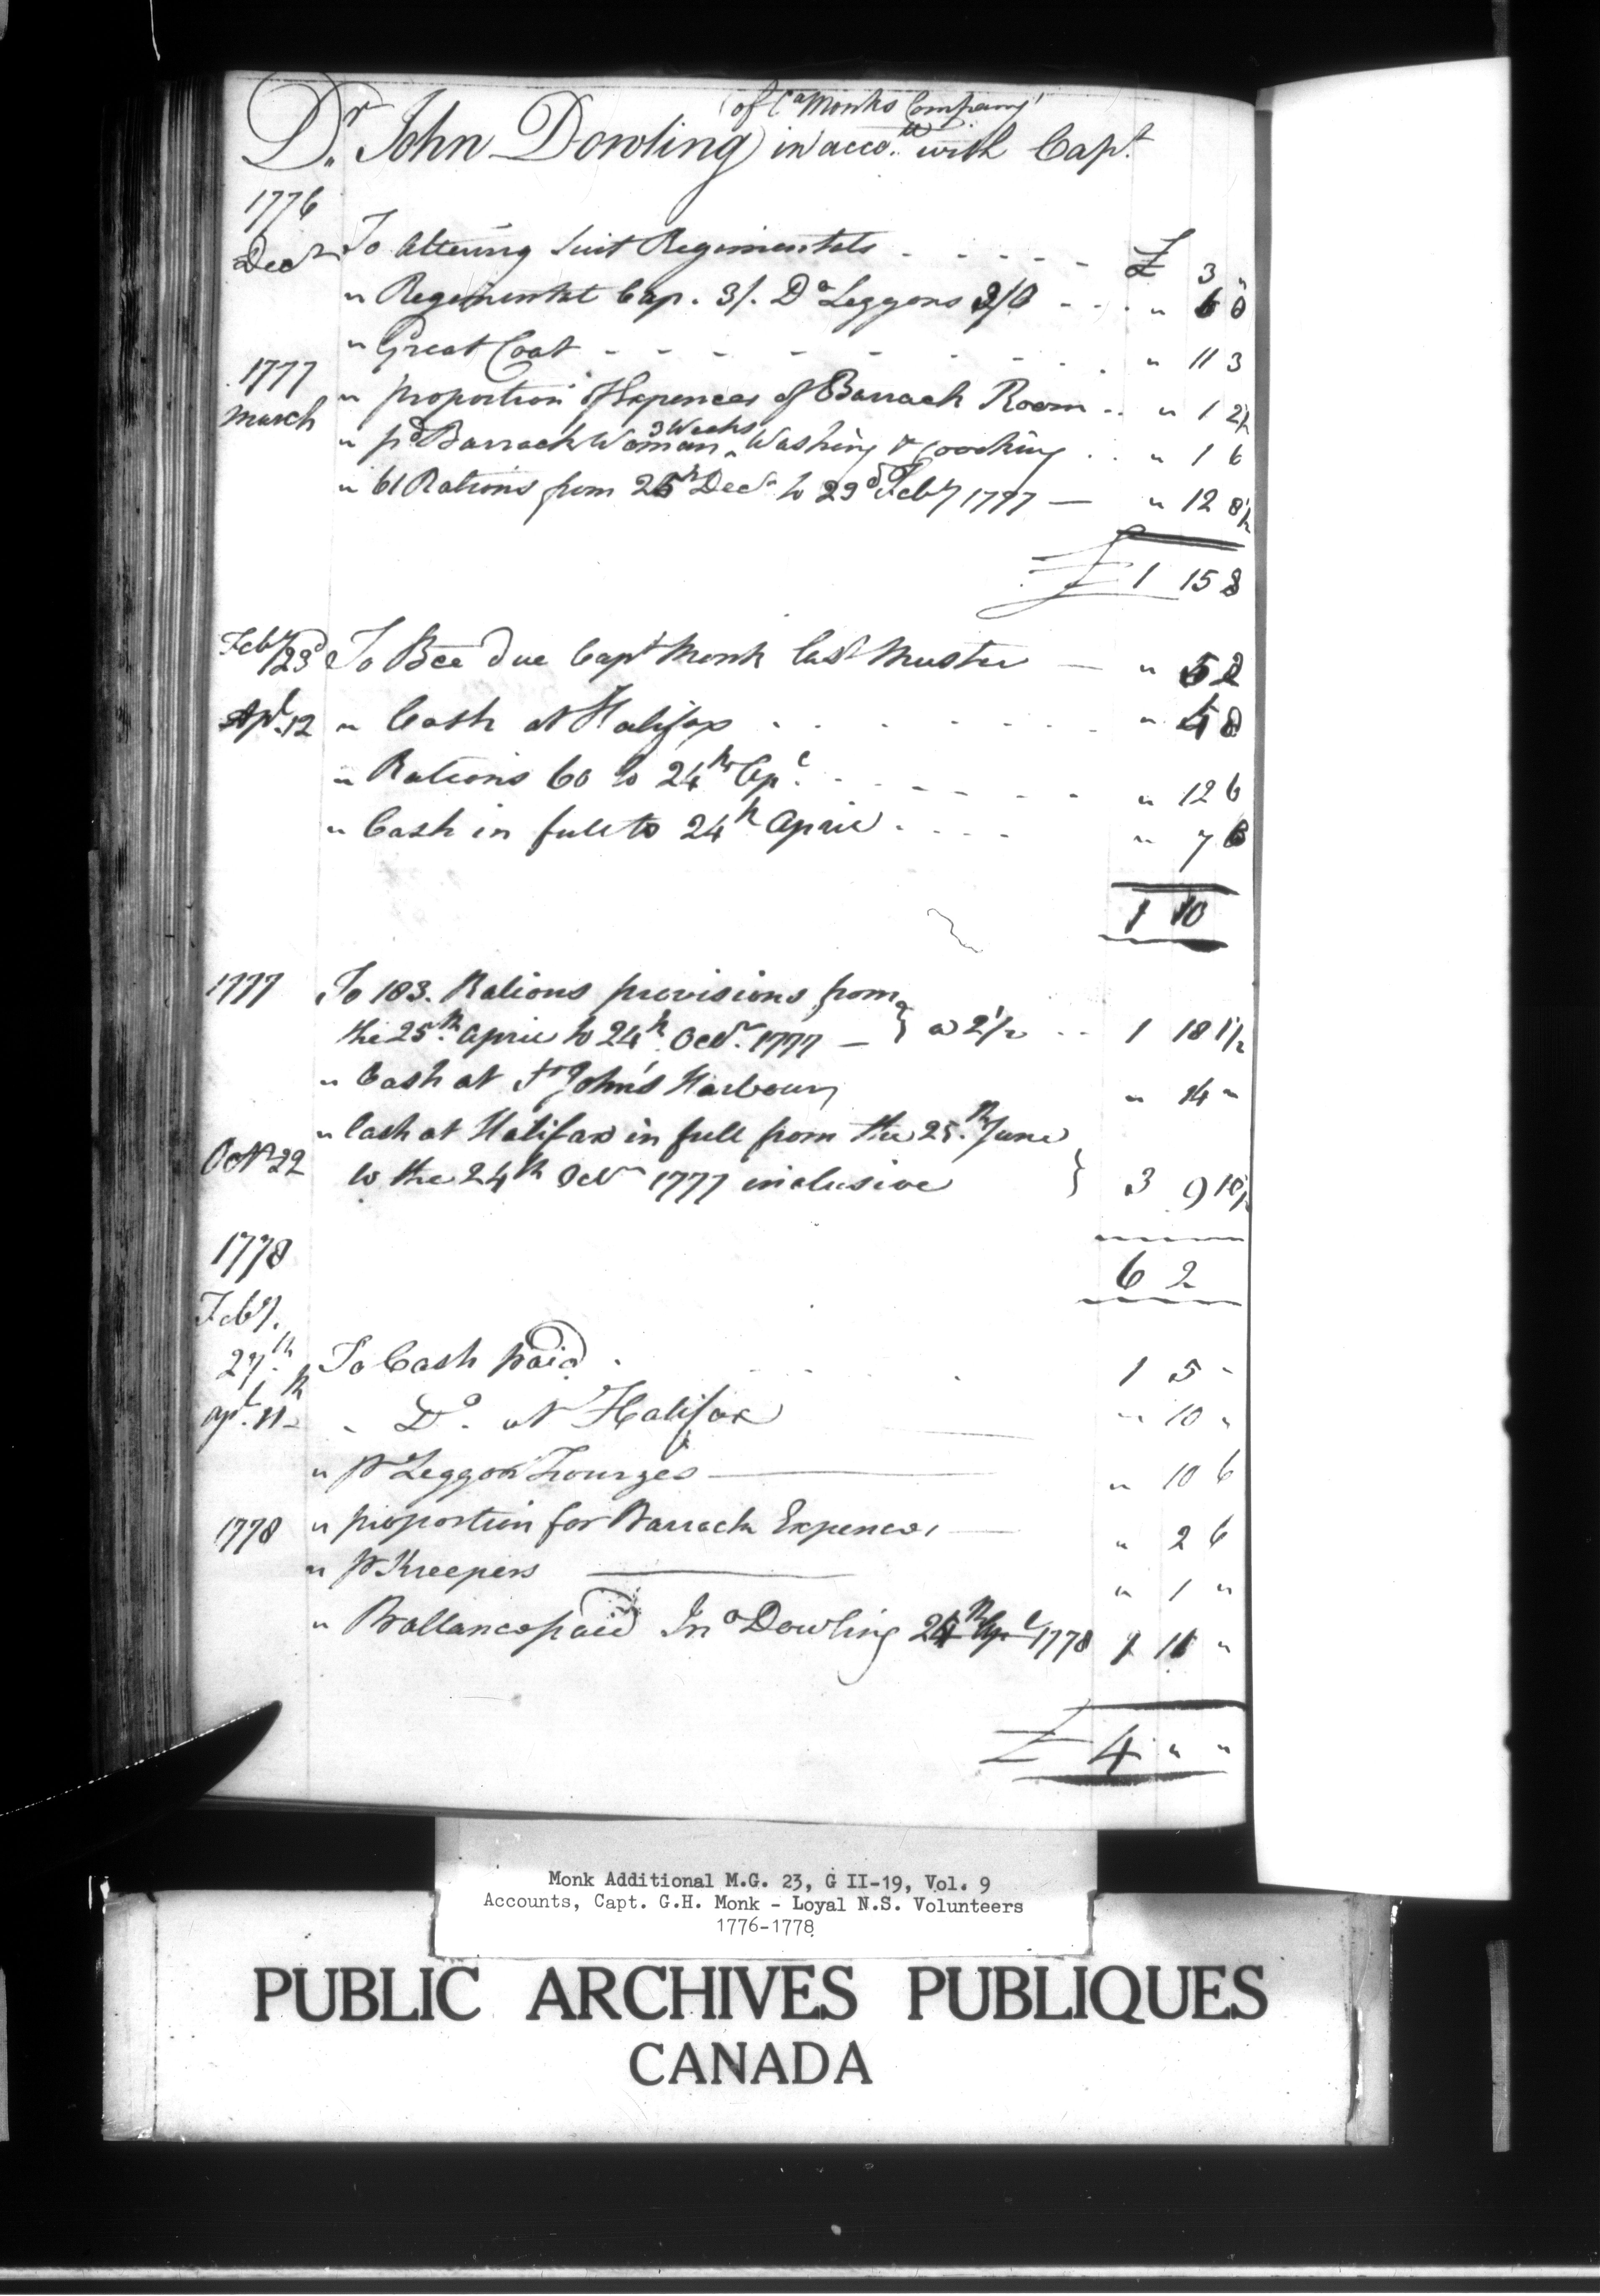 (of Cᵃ Monks Company)
Dʳ. John Dowling in accoᵗ. with Capᵗ
1776
Decʳ To altering Suit Regimentals - - - - - £ 3 "
" Regimental Cap. 3/. Dᵒ Leggons 3/8 - - - " 6 8
" Great Coat - - - - - - - - " 11 3
1777
March " proportion of Expences of Barrack Room - - " 1 2½
3 Weeks
" pᵈ Barrack Woman ‸ Washing & Cooking . . " 1 6
" 61 Rations from 25ᵗʰ Decʳ to 23ᵈ Febʸ 1777 — " 12 8½
£ 1 15 8
Febʸ 23ᵈ To Bce due Capᵗ Monk last Muster — " 5 2
Apˡ. 12 " Cash at Halifax - - - - - " 4 8
" Rations 60 to 24ᵗʰ Apˡ. - - - - - " 12 6
" Cash in full to 24ᵗʰ April - - - - " 7 8
1 10
1777 To 183. Rations provisions from
the 25ᵗʰ. April to 24ᵗʰ. Octʳ. 1777 — } a 2½ - - 1 18 1½
" Cash at Sᵗ John's Harbour " 14 "
" Cash at Halifax in full from the 25.ᵗʰ June
Octʳ 22 to the 24ᵗʰ Octʳ 1777 inclusive } 3 9 10½
6 2
1778
Febʸ.
27.ᵗʰ To Cash paid . 1 5 -
apˡ. 11ᵗʰ " Dᵒ. at Halifax " 10 "
" pʳ Leggon Trowzes — " 10 6
1778 " proportion for Barrack Expences, — " 2 6
" pʳ Kreepers — " 1 "
" Ballance paid Jnᵒ Dowling 24ᵗʰ Apˡ 1778 1 11 "
£ 4 " "
Monk Additional M.G. 23, G II-19, Vol. 9
Accounts, Capt. G.H. Monk - Loyal N.S. Volunteers
1776-1778
PUBLIC ARCHIVES PUBLIQUES
CANADA